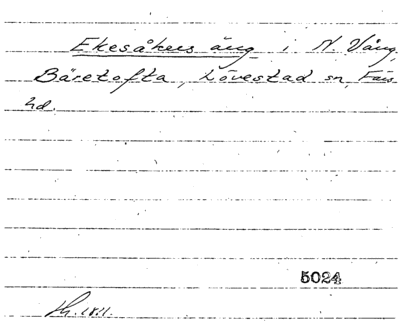 Ekesåkers äng i N. Vång,
Bäretofta, Lövestad sn, Färs
hd.
5024